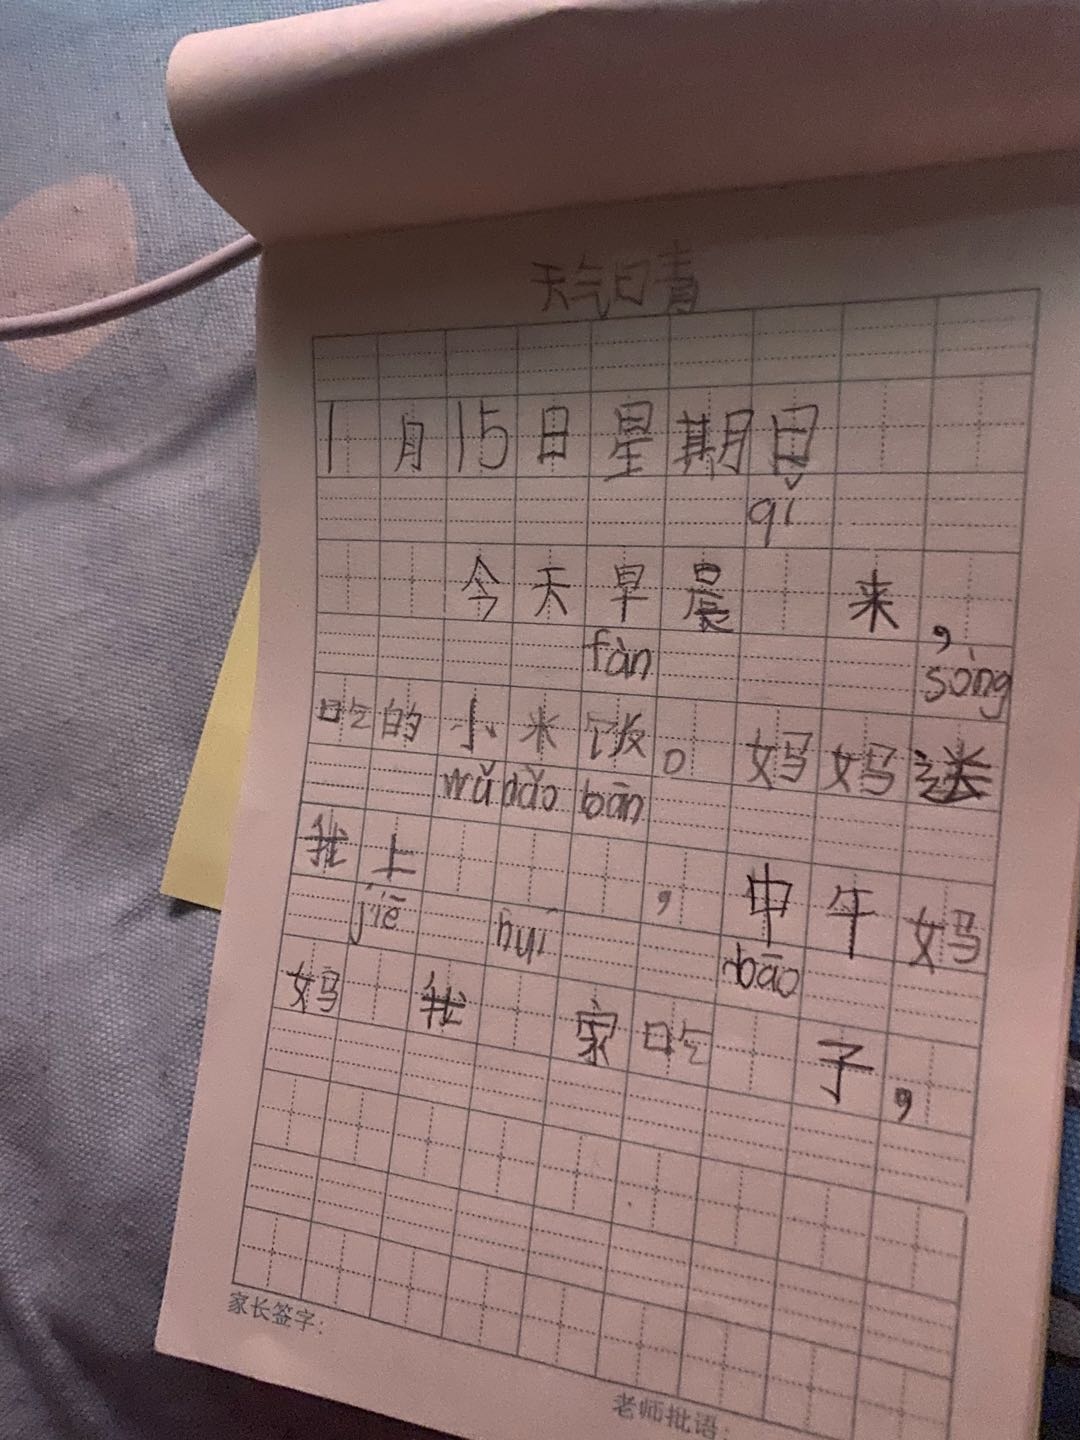 天气日青
1月15日星期日
qǐ
今天早晨 来，
fàn sòng
吃的小米饭。妈妈送
wǔ dǎo bān
我上 ，中午妈
jiē huí bāo
妈 我 家吃 子，
家长签字：
老师批语：